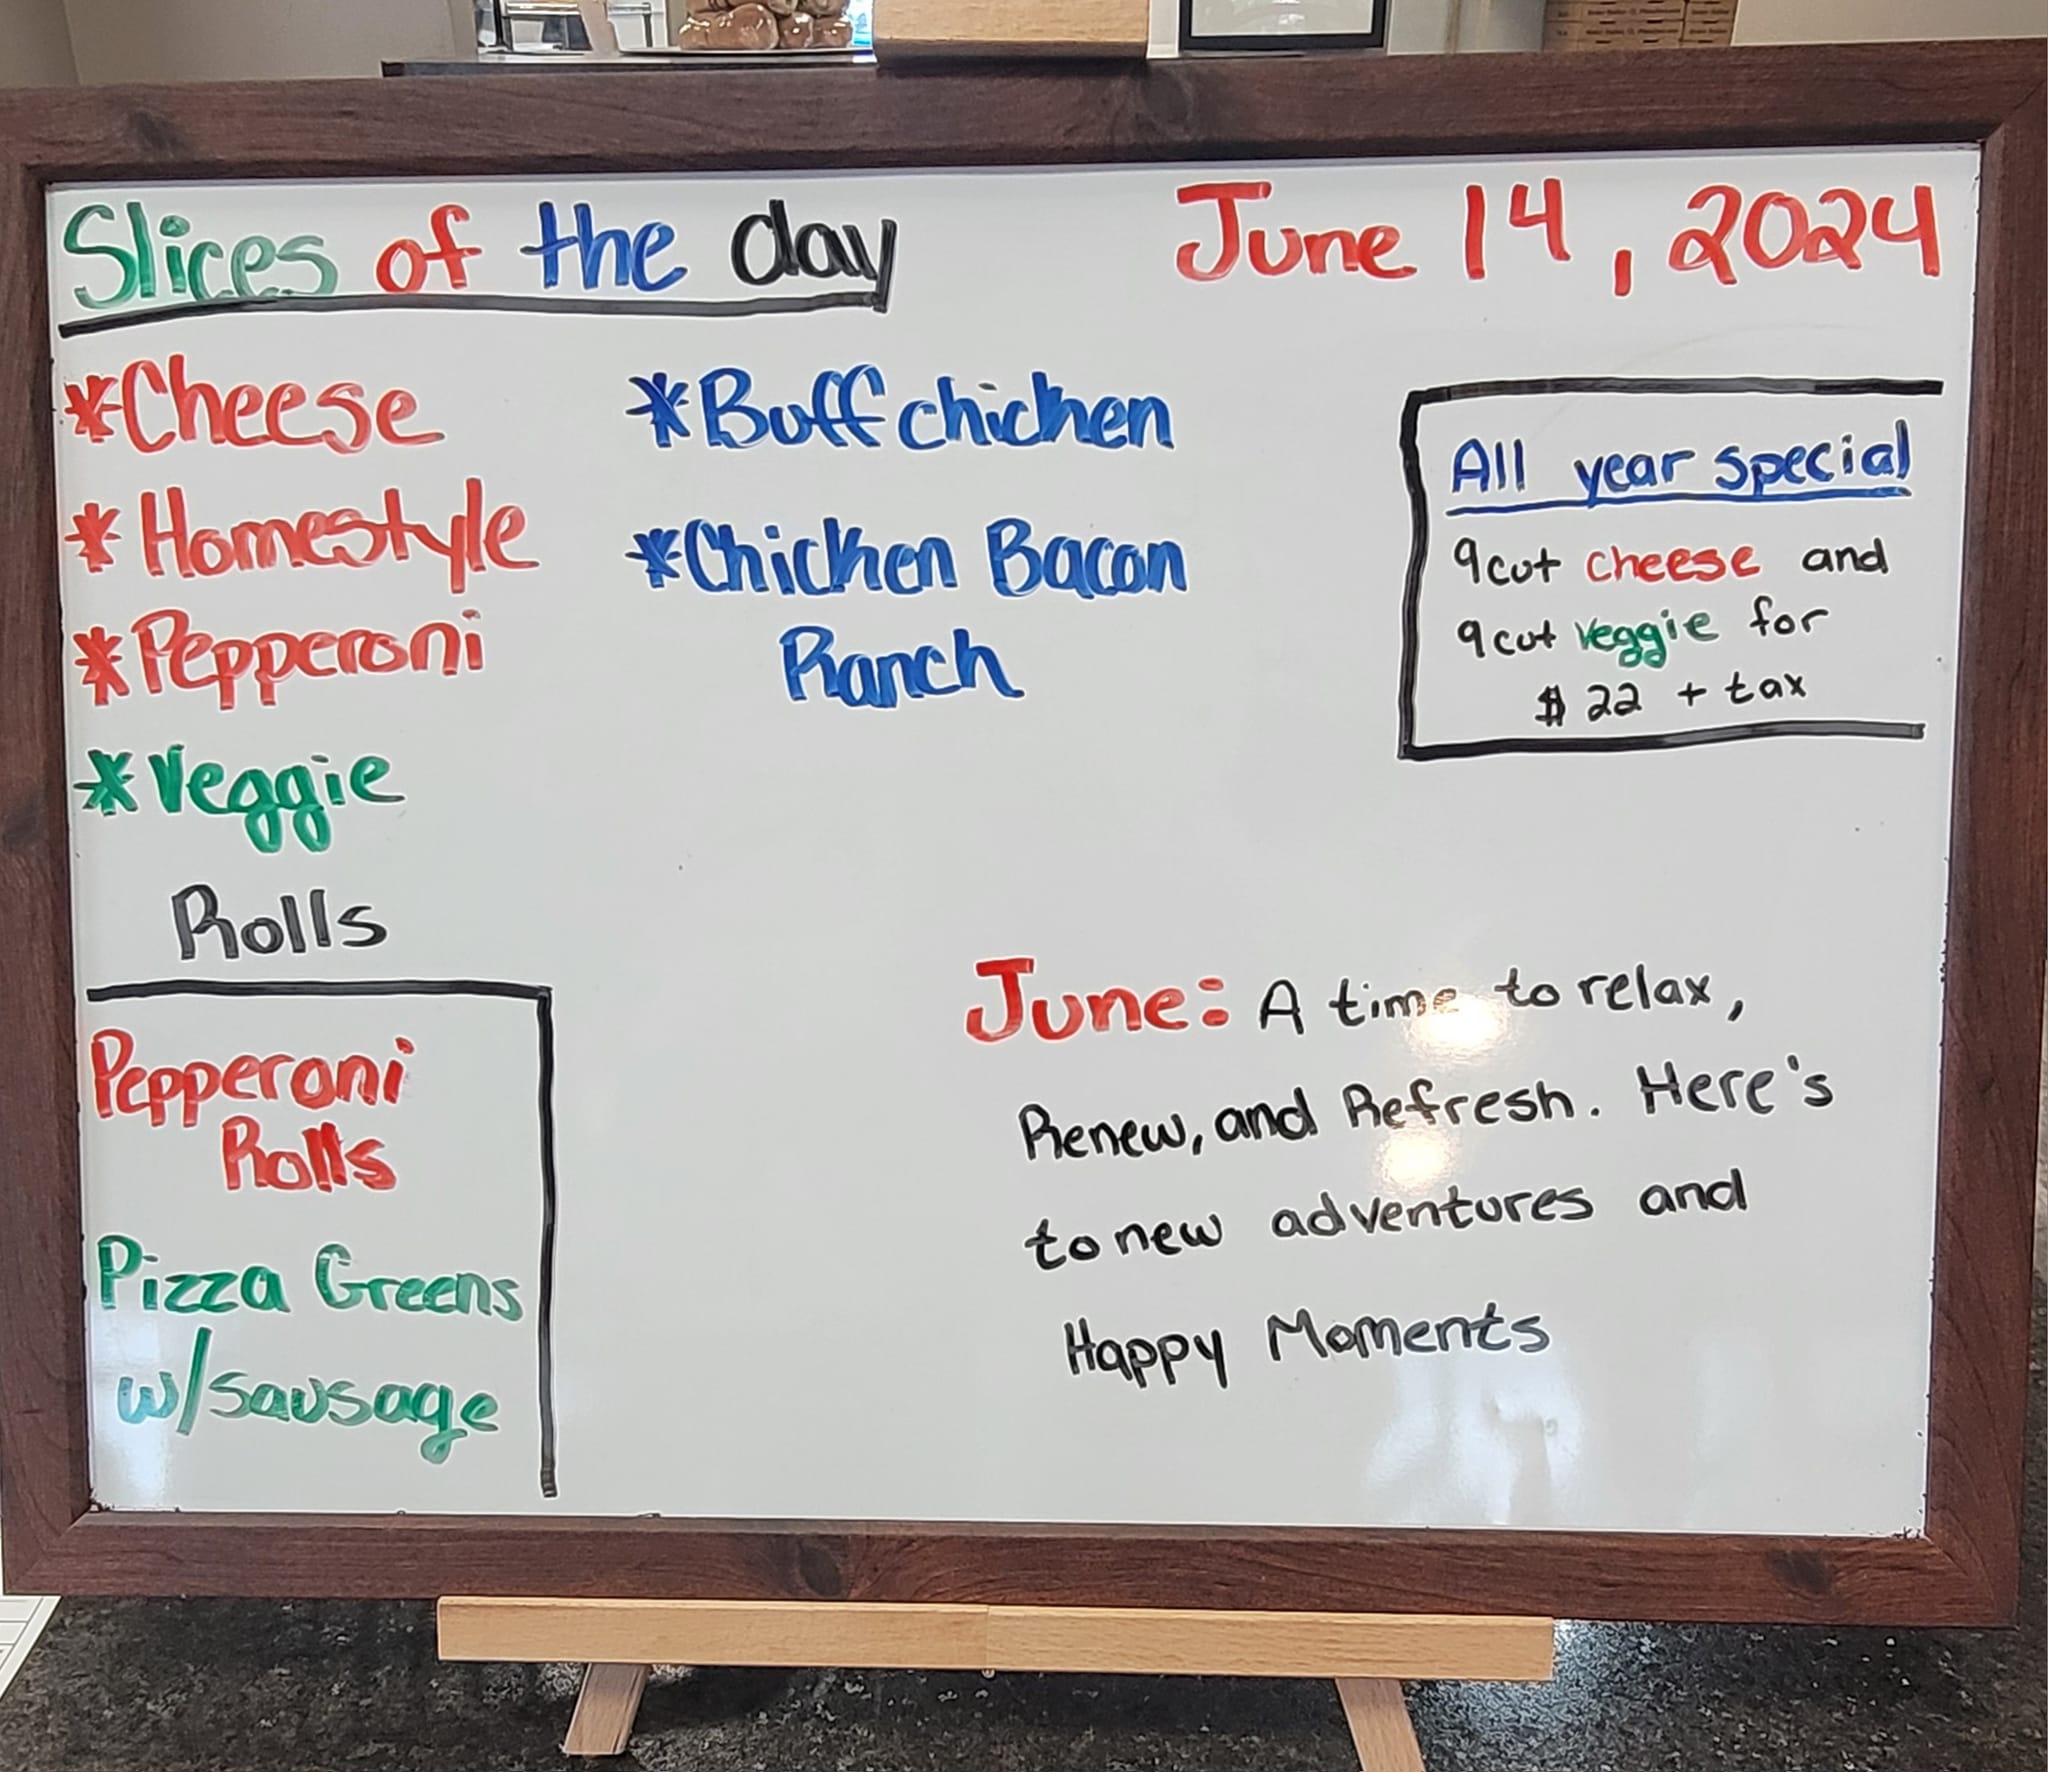 Slices of the day
June 14, 2024
*Cheese
*Homestyle
*Pepperoni
*Veggie
*Buff chicken
*Chicken Bacon
Ranch
All year special
9cut cheese and
9cut veggie for
$22 + tax
Rolls
Pepperoni
Rolls
Pizza Greens
w/sausage
June: A time to relax,
Renew, and Refresh. Here's
to new adventures and
Happy Moments